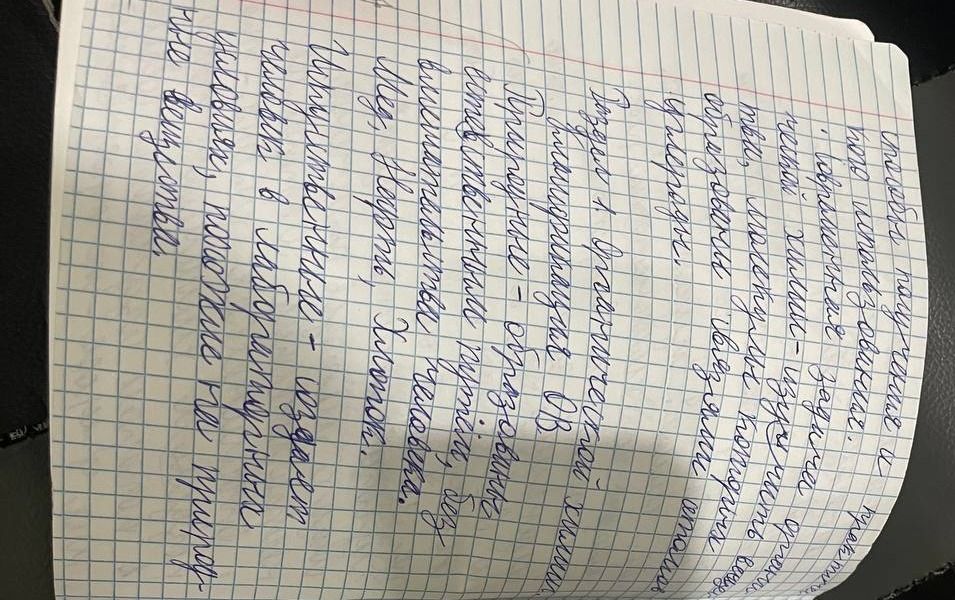 способы получения и практич.
кое использование.
: современная задача органи
ческой химии - изучить вещес
тва, молекулы которых
образованы связями атомов
углерода.
Раздел 1. Органической химии
Классификация ОВ
Природные - образованы
естественным путём, без
вмешательства человека.
Мед, Нефть, Хлопок.
Искусственные - создает
человек в лабораторных
условиях, похожие на природ-
ные вещества.